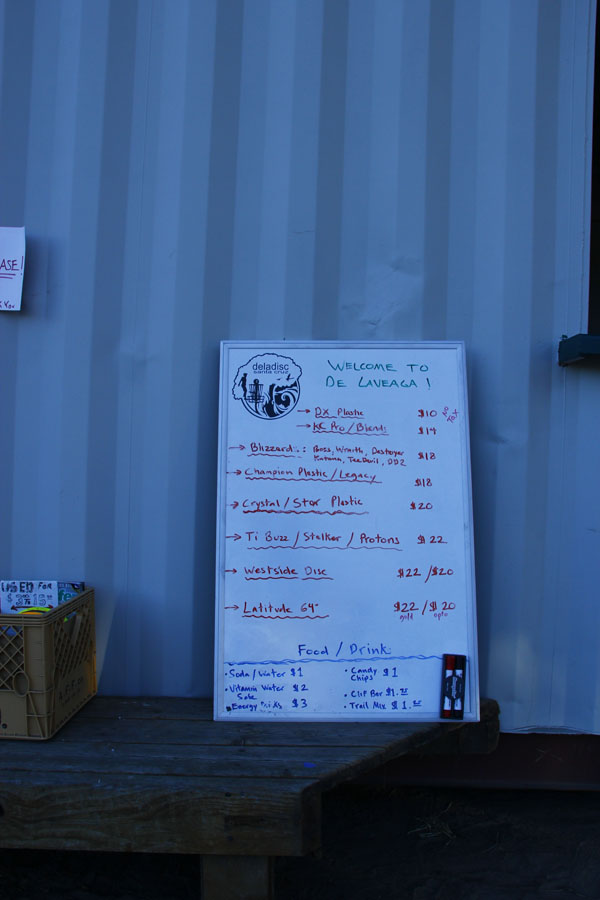 ASE!
You
deladisc
santa cruz
WELCOME TO
DE LAVEAGA!
→ DX Plastic $10 NO TAX
→ KC Pro/Blend: $14
→ Blizzard: Boss, Wraith, Destroyer
Katana, TeeDevil, DD2 $18
→ Champion Plastic/Legacy $18
→ Crystal/Star Plastic $20
→ Ti Buzz/Stalker/Protons $22
→ Westside Disc $22/$20
→ Latitude 64° $22/$20
gold opto
Food/Drink
• Soda/Water $1
• Vitamin Water $2
Sobe
• Energy Drinks $3
• Candy $1
Chips
• Clif Bar $1.
• Trail Mix $1.
USED FOR